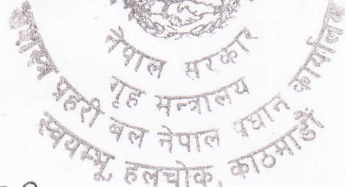 नेपाल सरकार
गृह मन्त्रालय
प्रहरी बल नेपाल प्रधान कार्यालय
स्वयम्भू, हलचोक, काठमाडौं